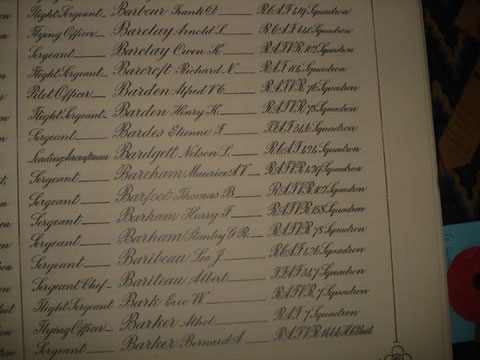 Flight Sergeant Barbour Frank D. R.C.A.F. 419 Squadron
Flying Officer Barclay Arnold L. R.C.A.F. Squadron
Sergeant Barclay Owen K. R.A.F.V.R. 102 Squadron
Flight Sergeant Barcroft Richard N. R.A.F. 104 Squadron
Pilot Officer Barden Alfred V.C. R.A.F.V.R. 76 Squadron
Flight Sergeant Barden Henry K. R.A.F.V.R. 78 Squadron
Sergeant Bardes Etienne F. F.A.F. 346 Squadron
Leading Aircraftman Bardgett Nelson S. R.C.A.F. 424 Squadron
Sergeant Bareham Maurice A.V. R.A.F.V.R. 429 Squadron
Sergeant Barfoot Thomas B. R.A.F.V.R. 102 Squadron
Sergeant Barham Harry F. R.A.F.V.R. 158 Squadron
Sergeant Barham Stanley G.R. R.A.F.V.R. 78 Squadron
Sergeant Baribeau Leo J. R.C.A.F. 426 Squadron
Sergeant Chef Bariteau Albert F.A.F. 347 Squadron
Flight Sergeant Bark Eric W. R.A.F.V.R. 7 Squadron
Flying Officer Barker Athol R.A.F. 7 Squadron
Sergeant Barker Bernard A. R.A.F.V.R. 1664 H.C. Unit